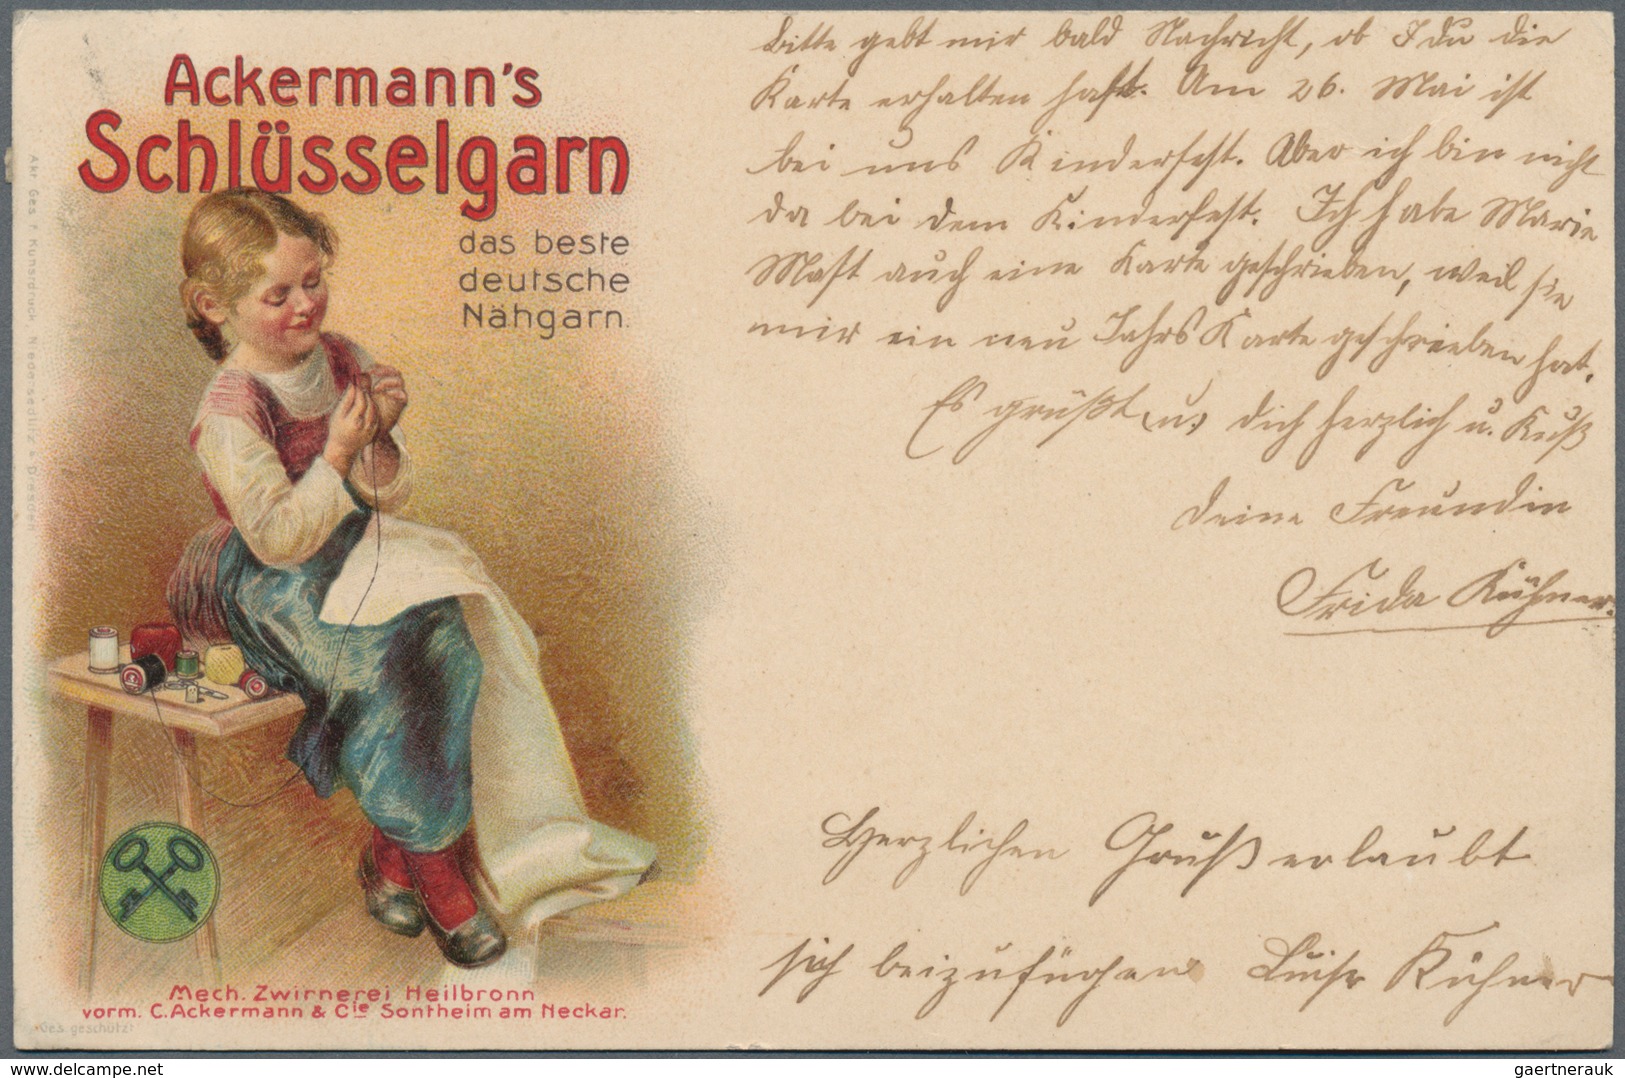 Ackermann's
Schlüsselgarn
das beste
deutsche
Nähgarn.
Akt. Ges. f. Kunstdruck Niedersedlitz-Dresden
Mech. Zwirnerei Heilbronn
vorm. C. Ackermann & Cie Sontheim am Neckar.
Ges. geschützt
Bitte gebt mir bald Nachricht, ob Du die
Karte erhalten hast. Am 26. Mai ist
bei uns Kinderfest. Aber ich bin nicht
da bei dem Kinderfest. Ich habe Marie
Mast auch eine Karte geschrieben, weil sie
mir ein neu Jahrs Karte geschrieben hat.
Es grüßt u. dich herzlich u. Kuß
deine Freundin
Frida Kühner.
Herzlichen Gruß erlaubt
sich beizufügen Luise Kühner
delcampe.net
gaertnerauk